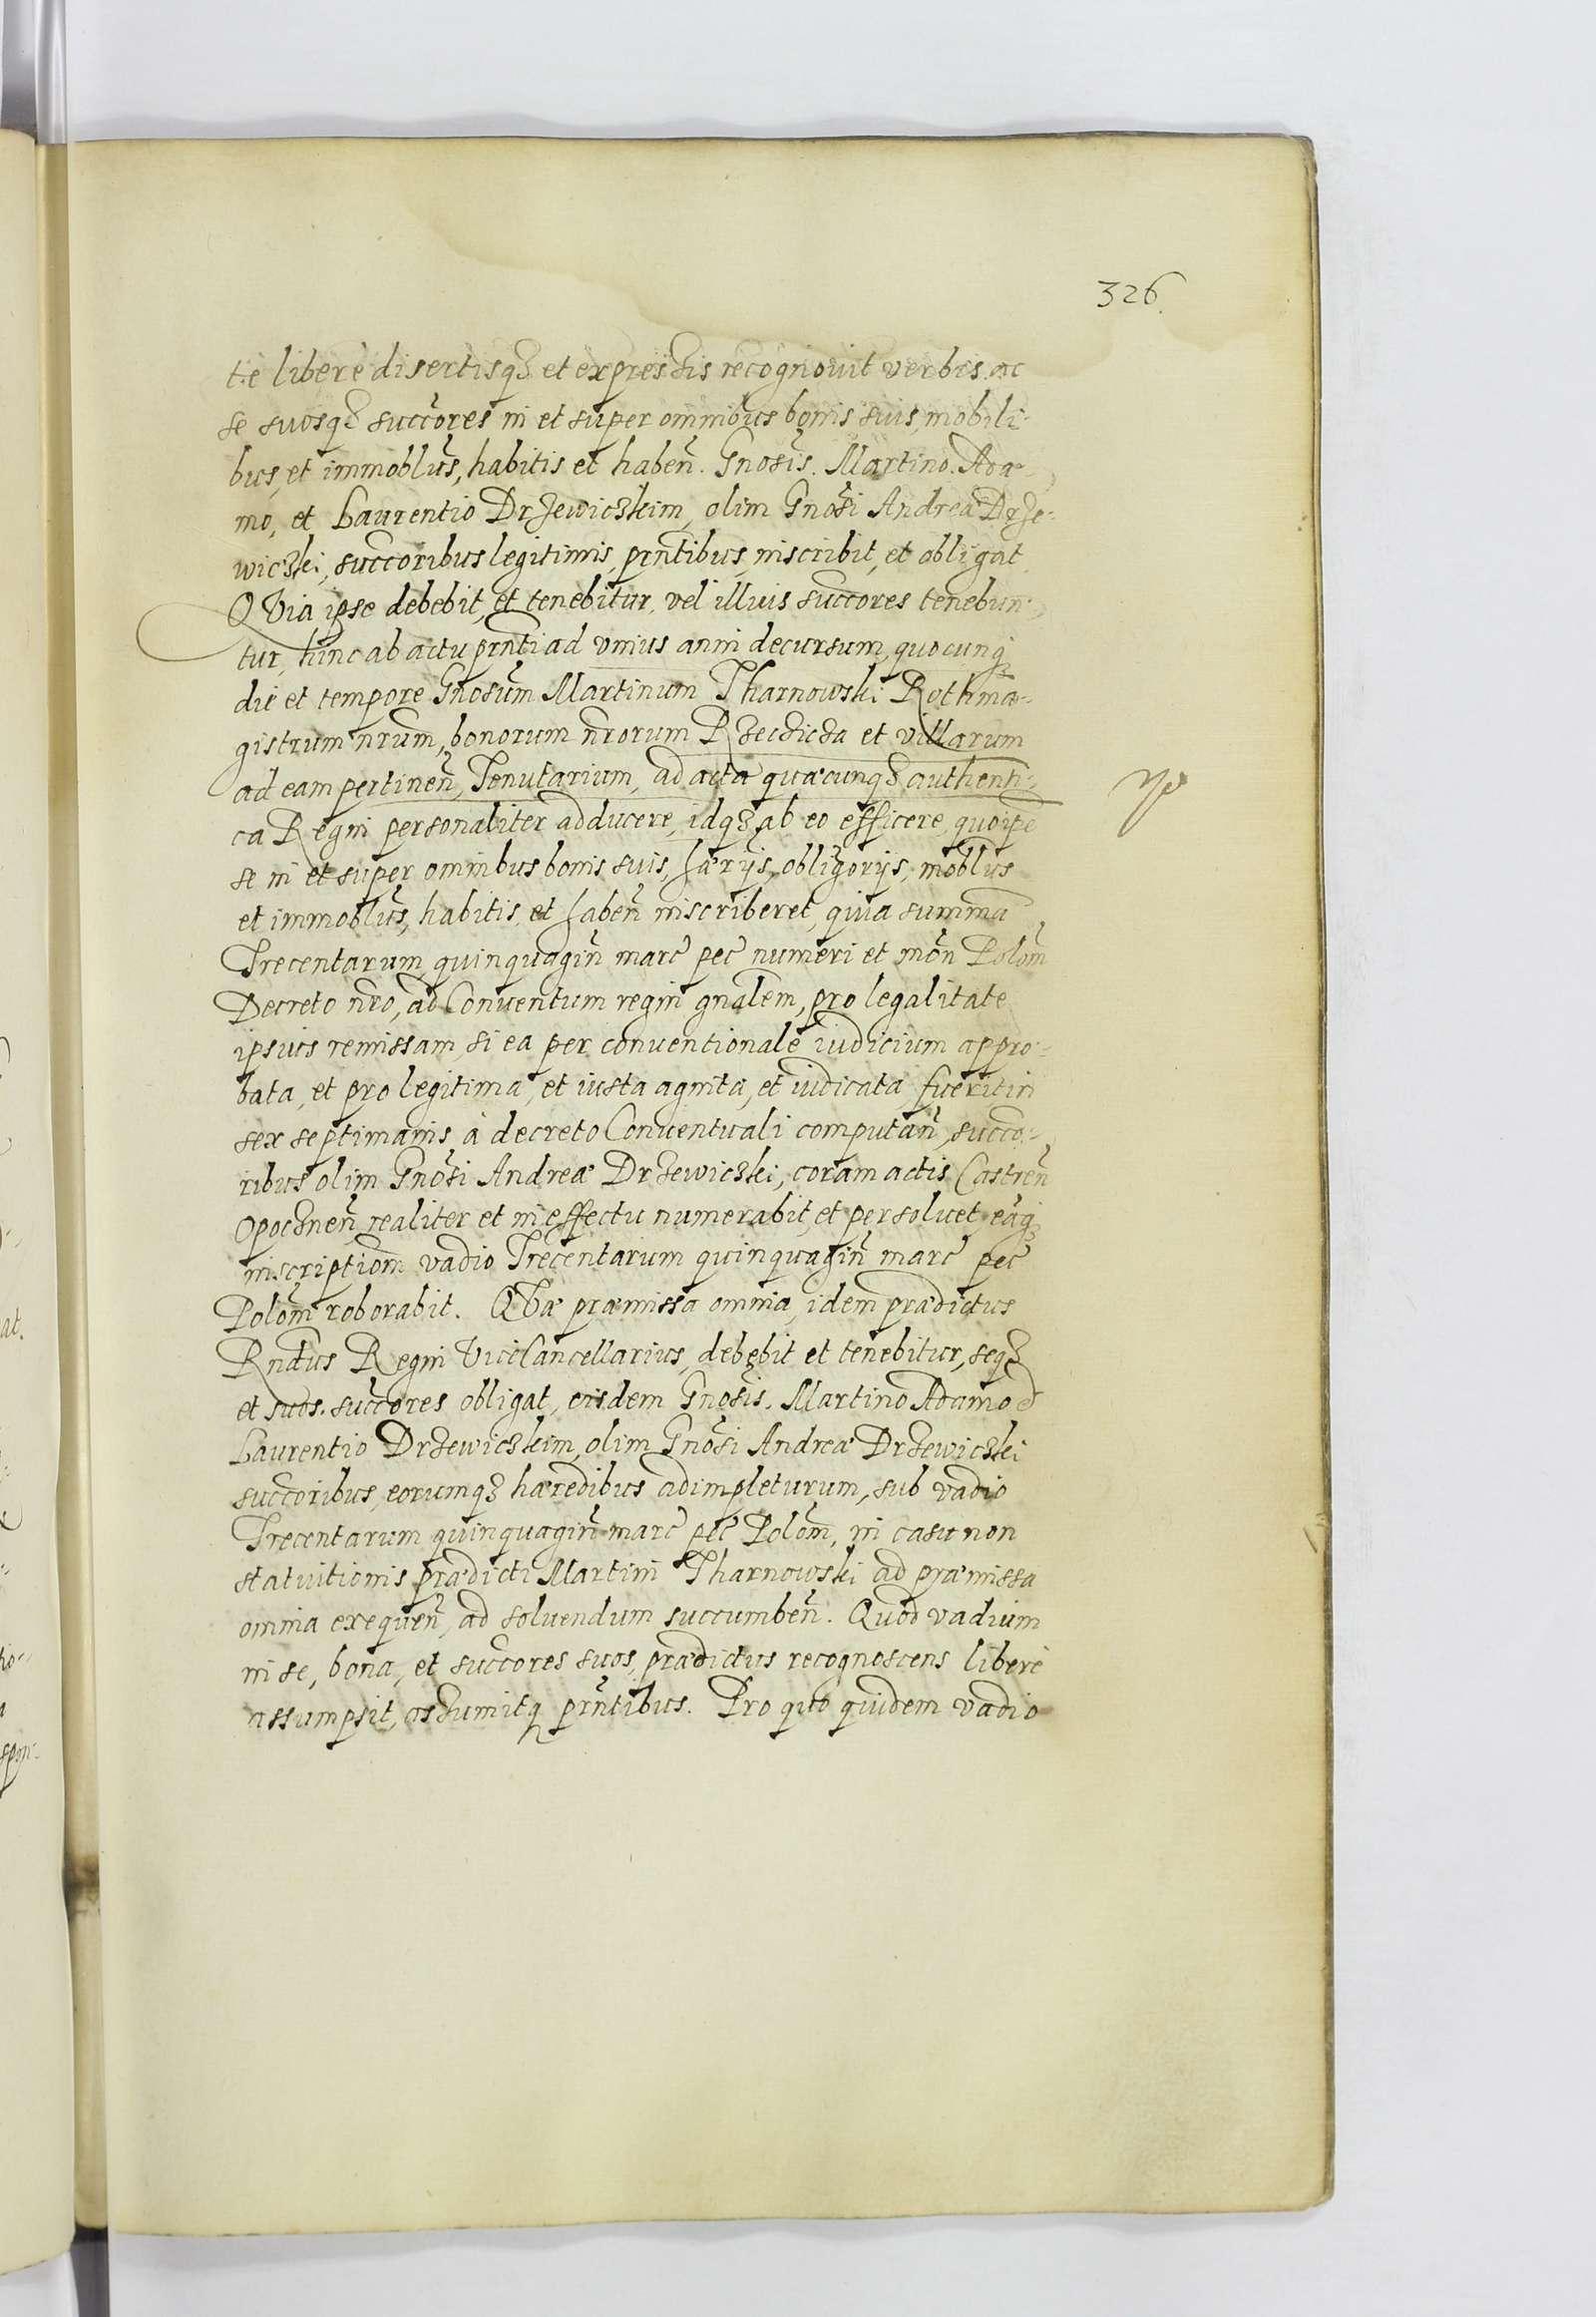 326
te liberè disertisq3 et expressis recognouit verbis. ac
se suosq3 succores in et super omnibus bonis suis, mobili-
bus, et immoblus, habitis et haben. Gnosis. Martino. Ada-
mo, et Laurentio Drzewiczkim, olim Gnosi Andreæ Drze-
wiczki, succoribus legitimis, prntibus, inscribit, et obligat
QVia ipse debebit, et tenebitur, vel illius succores tenebun-
tur, hinc ab actu prnti ad vnius anni decursum, quocunq3
die et tempore Gnosum Martinum Tharnowski Rothma-
gistrum nrum, bonorum nrorum Rzecicza et villarum
ad eam pertinen, Tenutarium, ad acta quæcunq3 authenti-
ca Regni personaliter adducere, idq3 ab eo efficere, quo ipse
se in et super omnibus bonis suis, hærijs, obligorijs, moblus
et immoblus, habitis, et haben inscriberet, quia summa
Trecentarum quinquagin marc pec numeri et mon Polom
Decreto nro, ad Conuentum regni gnalem, pro legalitate
ipsius remissam, si ea per conuentionale iudicium appro-
bata, et pro legitima, et iusta agnita, et iudicata fuerit in
sex septimanis à decreto Conuentuali computan, succo-
ribus olim Gnosi Andreæ Drzewiczki, coram actis Castren
Opocznen, realiter et in effectu numerabit, et persoluet, eaq3
inscriptiom vadio Trecentarum quinquagin marc pec
Polom roborabit. QVæ præmissa omnia, idem prædictus
Rndus Regni ViceCancellarius, debebit et tenebitur, seq3
et suos. succores obligat, eisdem Gnosis, Martino Adamo et
Laurentio Drzewiczkim, olim Gnosi Andreæ Drzewiczki
succoribus, eorumq3 hæredibus adimpleturum, sub vadio
Trecentarum quinquagin marc pec Polom, in casu non
statuitionis prædicti Martini Tharnowski ad præmissa
omnia exequen, ad soluendum succumben. Quod vadium
in se, bona, et succores suos, prædictus recognoscens liberè
assumpsit, assumitq prntibus. Pro quo quidem vadio